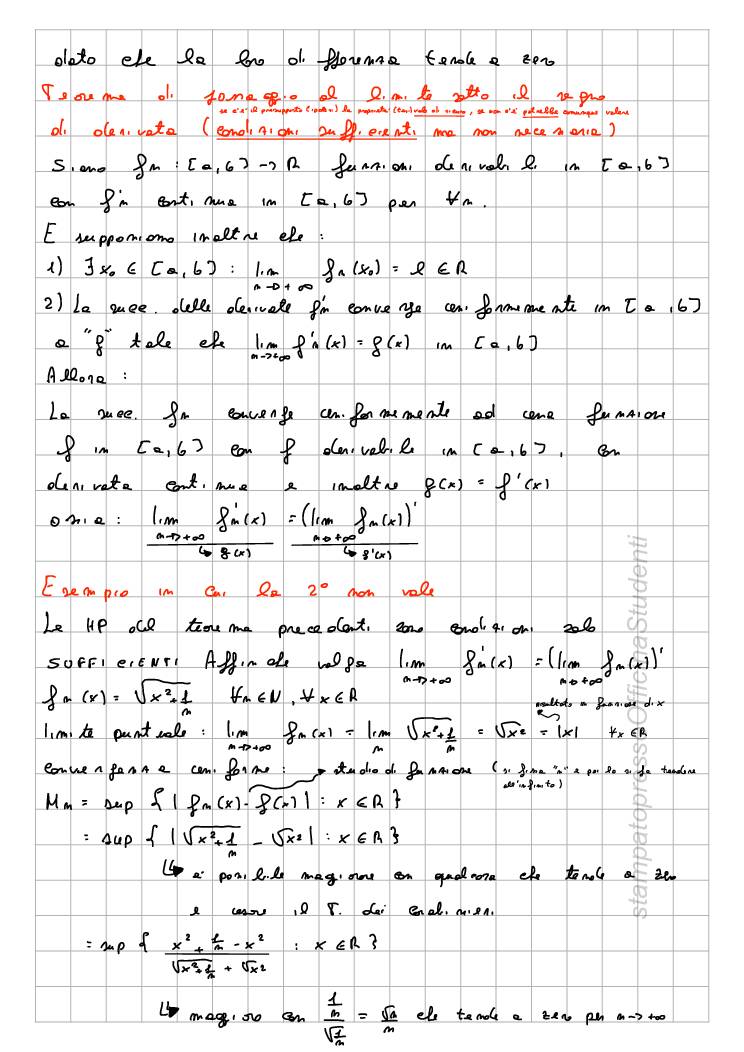 dato che la loro differenza tende a zero
Teorema di passaggio al limite sotto il segno
se c'è il presupposto (ipotesi) la proprietà (tesi) vale di sicuro, se non c'è potrebbe comunque valere
di derivata (condizioni sufficienti ma non necessarie)
Siano fn : [a,b] -> R funzioni derivabili in [a,b]
con f'n continua in [a,b] per ∀n.
E supponiamo inoltre che :
1) ∃x₀ ∈ [a,b] : lim n->+∞ fn(x₀) = l ∈ R
2) La succ. delle derivate f'n converge uniformemente in [a,b]
a "g" tale che lim n->+∞ f'n(x) = g(x) in [a,b]
Allora :
La succ. fn converge uniformemente ad una funzione
f in [a,b] con f derivabile in [a,b], con
derivata continua e inoltre g(x) = f'(x)
ossia : lim n->+∞ f'n(x) = (lim n->+∞ fn(x))'
↳ g(x) ↳ f'(x)
Esempio in cui la 2° non vale
Le HP del teorema precedenti sono condizioni solo
SUFFICIENTI Affinché valga lim n->+∞ f'n(x) = (lim n->+∞ fn(x))'
fn(x) = √(x²+1/n) ∀n∈N, ∀x∈R
risultato in funzione di x
limite puntuale : lim n->+∞ fn(x) = lim n √(x²+1/n) = √x² = |x| ∀x∈R
convergenza uniforme : studio di funzione (si fissa "n" e poi lo si fa tendere
all'infinito)
Mn = sup { | fn(x) - f(x) | : x ∈ R }
= sup { |√(x²+1/n) - √x²| : x ∈ R }
↳ è possibile maggiorare con qualcosa che tende a zero
e usare il T. dei carabinieri
= sup { (x² + 1/n - x²)/(√(x²+1/n) + √x²) : x ∈ R }
↳ maggioro con (1/n)/(√(1/n)) = √n/n che tende a zero per n->+∞
stampatopressoOfficinaStudenti